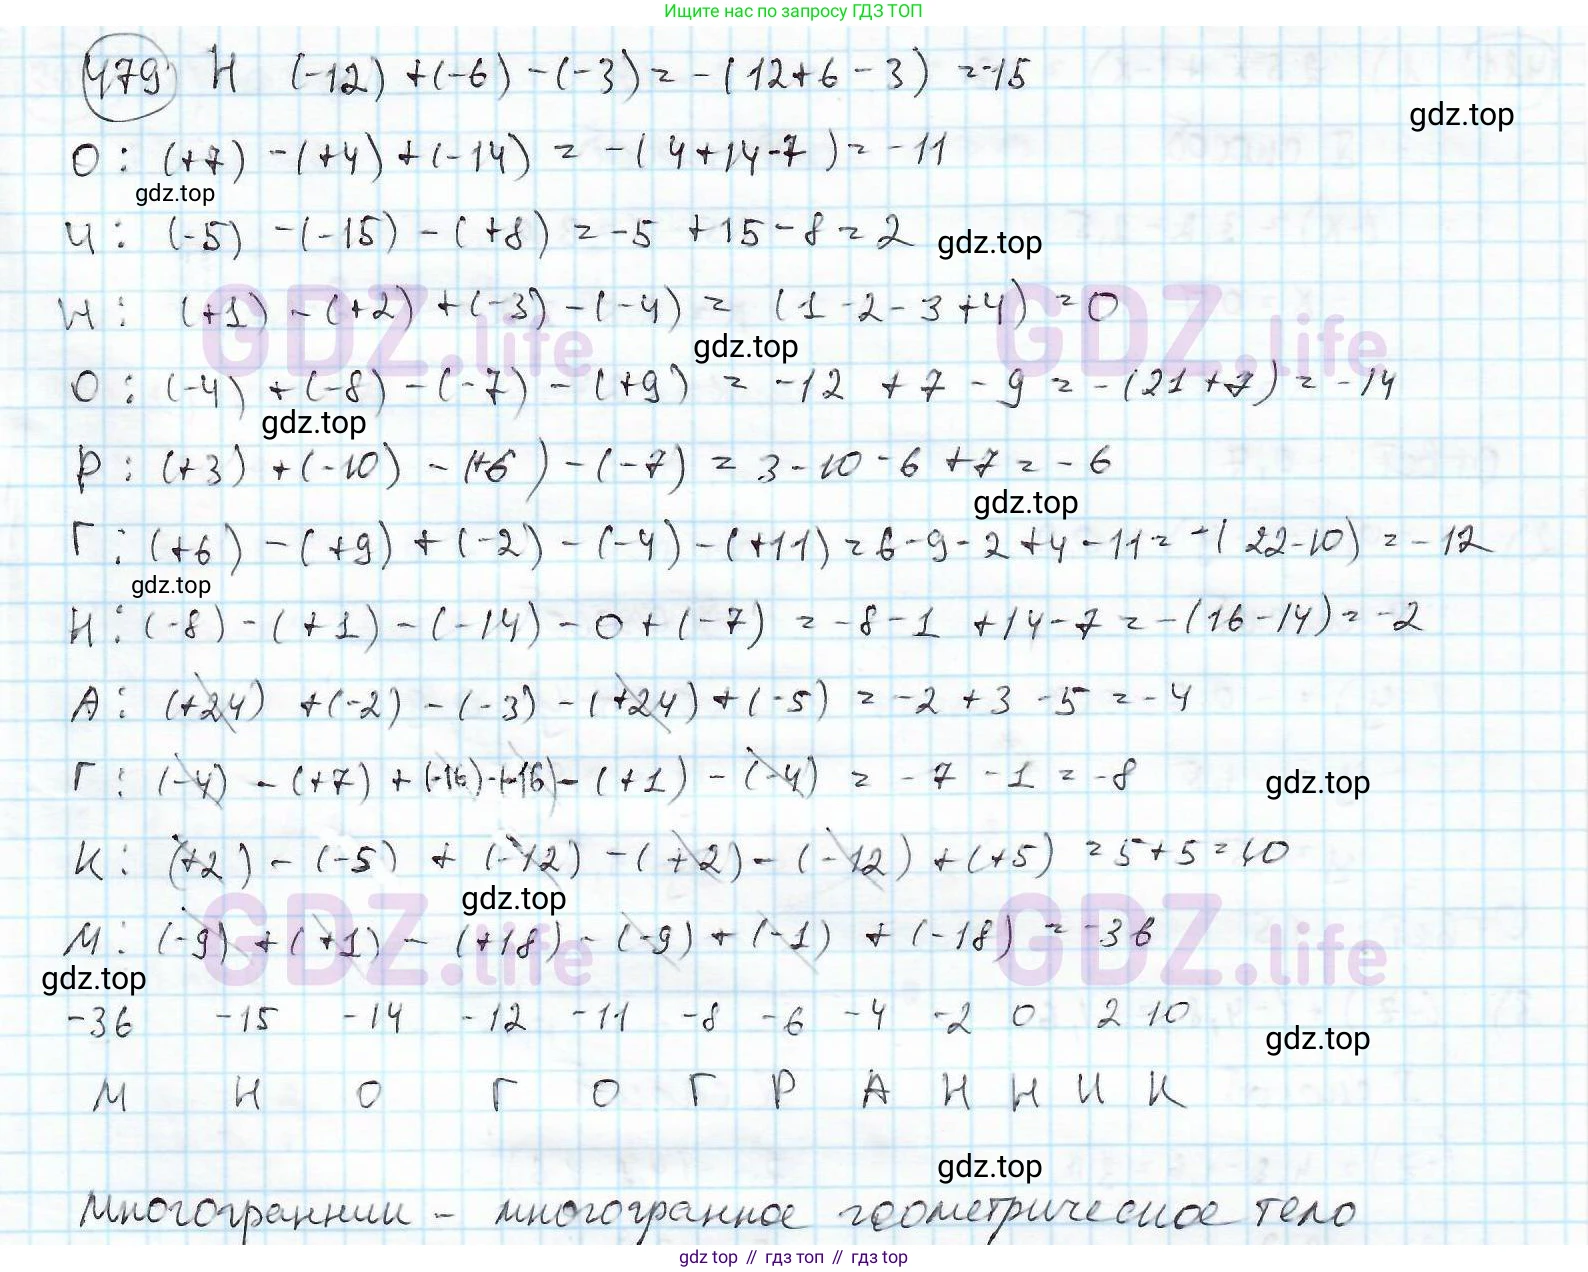 Ищите нас по запросу ГДЗ ТОП
479 Н (-12) + (-6) - (-3) = - (12 + 6 - 3) = -15
gdz.top
О : (+7) - (+4) + (-14) = - (4 + 14 - 7) = - 11
gdz.top
И : (-5) - (-15) - (+8) = -5 + 15 - 8 = 2
gdz.top
Н : (+1) - (+2) + (-3) - (-4) = (1 - 2 - 3 + 4) = 0
GDZ.life GDZ.life
gdz.top
О : (-4) + (-8) - (-7) - (+9) = -12 + 7 - 9 = - (21 + 7) = - 14
gdz.top
Р : (+3) + (-10) - (+6) - (-7) = 3 - 10 - 6 + 7 = - 6
gdz.top
Г : (+6) - (+9) + (-2) - (-4) - (+11) = 6 - 9 - 2 + 4 - 11 = - (22 - 10) = - 12
gdz.top
Н : (-8) - (+1) - (-14) - 0 + (-7) = -8 - 1 + 14 - 7 = - (16 - 14) = -2
А : (+24) + (-2) - (-3) - (+24) + (-5) = -2 + 3 - 5 = - 4
Г : (-4) - (+7) + (-16) - (-16) - (+1) - (-4) = - 7 - 1 = -8
gdz.top
К : (+2) - (-5) + (-12) - (+2) - (-12) + (+5) = 5 + 5 = 10
gdz.top
GDZ.life GDZ.life
М : (-9) + (+1) - (+18) - (-9) + (-1) + (-18) = -36
gdz.top
-36 -15 -14 -12 -11 -8 -6 -4 -2 0 2 10
gdz.top
М Н О Г О Г Р А Н Н И К
gdz.top
Многогранник - многогранное геометрическое тело
gdz.top // гдз топ // гдз top